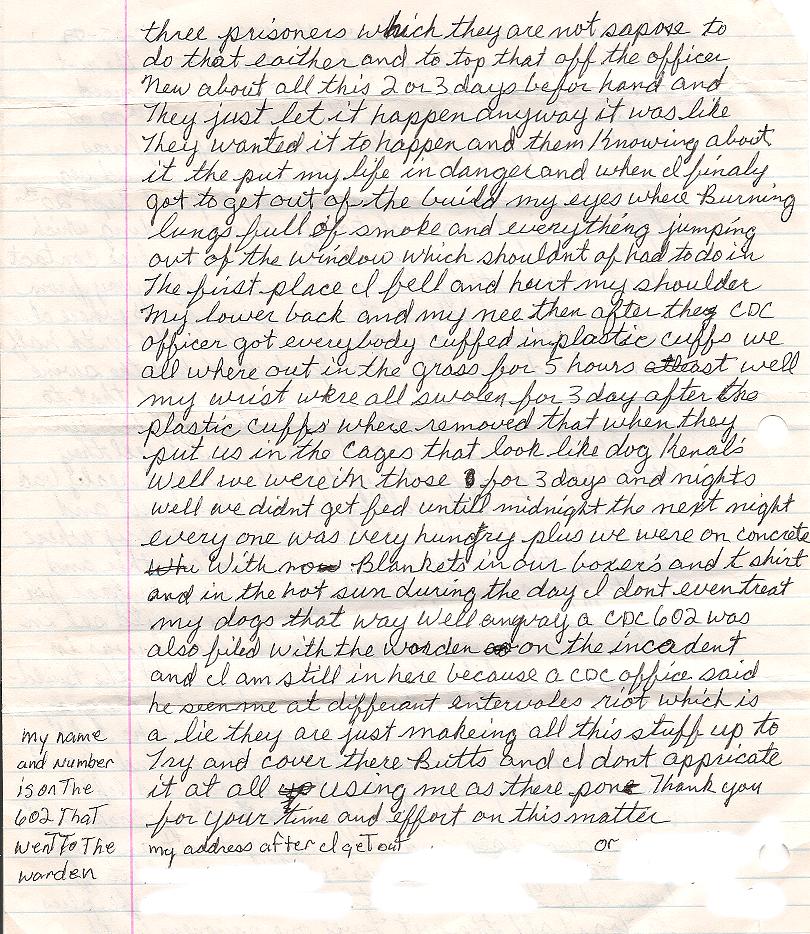 three prisoners which they are not sapose to
do that eaither and to top that off the officer
New about all this 2 or 3 days befor hand and
They just let it happen anyway it was like
They wanted it to happen and them Knowing about
it the put my life in danger and when I finaly
got to get out of the build my eyes where Burning
lungs full of smoke and everything jumping
out of the window which shouldnt of had to do in
The first place I fell and hurt my shoulder
My lower back and my nee then after they CDC
officer got everybody cuffed in plastic cuffs we
all where out in the grass for 5 hours atleast well
my wrist were all swolen for 3 day after the
plastic cuffs where removed that when they
put us in the cages that look like dog Kenal's
Well we were in those for 3 days and nights
well we didnt get fed untill midnight the next night
every one was very hungry plus we were on concrete
With no Blankets in our boxer's and t shirt
and in the hot sun during the day I dont even treat
my dogs that way Well anyway a CDC 602 was
also filed with the warden on the incadent
and I am still in here because a CDC office said
he seen me at differant entervales riot which is
a lie they are just makeing all this stuff up to
Try and cover there Butts and I dont appricate
it at all using me as there pone Thank you
for your time and effort on this matter
my address after I get out or
my name
and Number
is on The
602 That
went To The
warden